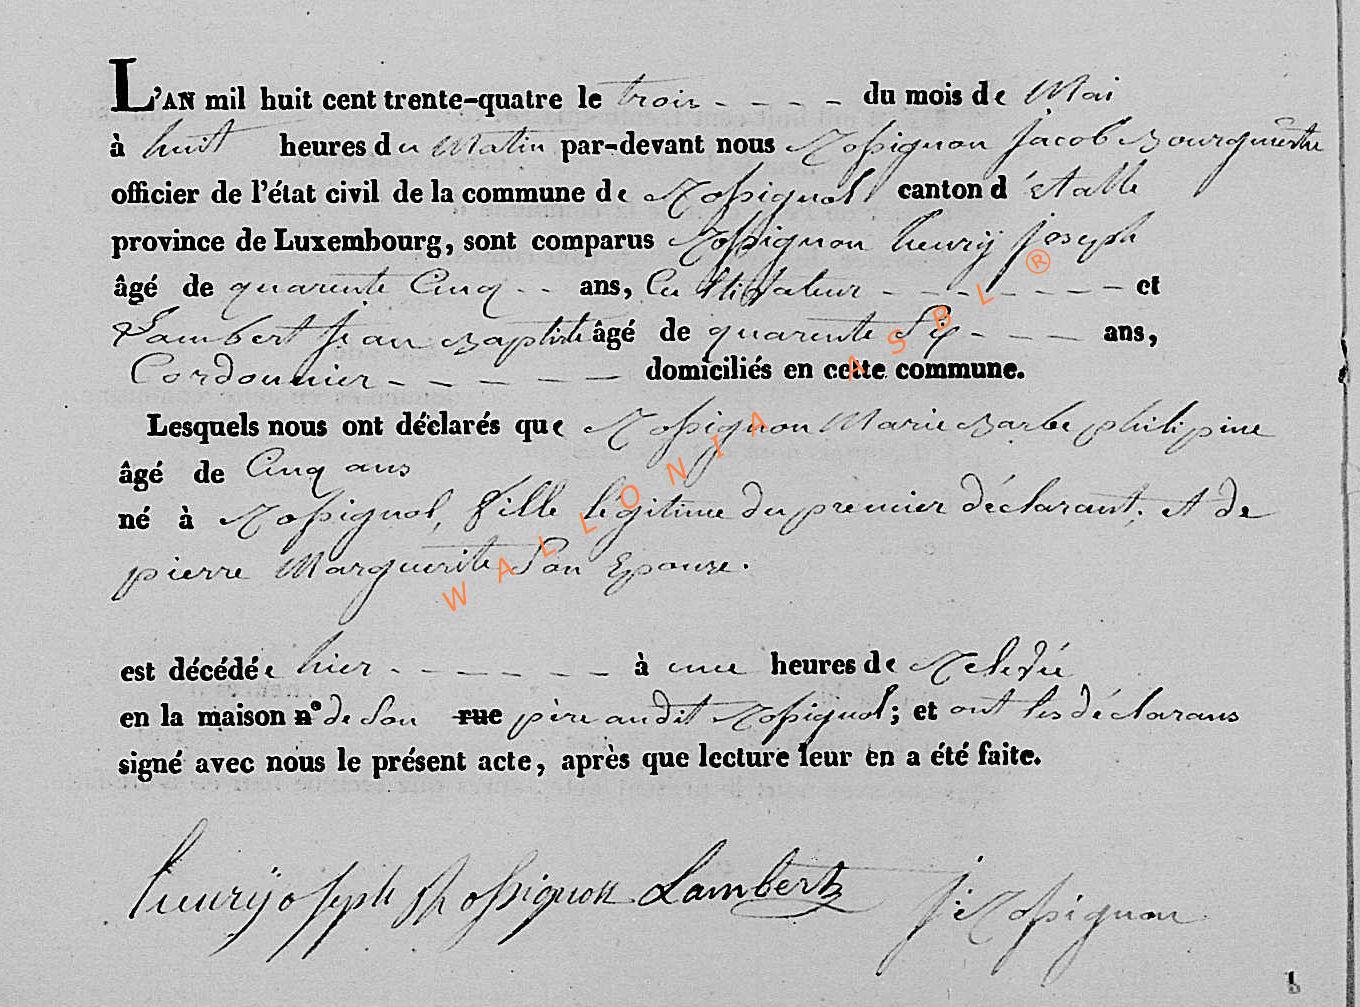 L'AN mil huit cent trente-quatre le trois - - - - du mois de Mai
à huit heures du Matin par-devant nous Rossignon Jacob Bourguemestre
officier de l'état civil de la commune de Rossignol canton d'étalle
province de Luxembourg, sont comparus Rossignon henry joseph
âgé de quarente Cinq - - ans, Cultivateur - - - - - - - et
Lambert Jean Baptiste âgé de quarente Six - - - ans,
Cordonnier - - - - - - domiciliés en cette commune.
Lesquels nous ont déclarés que Rossignon Marie Barbe philipine
âgé de Cinq ans
né à Rossignol, fille légitime du premier déclarant, et de
pierre Marguerite Son Epouze.
est décédée hier - - - - - - à une heures de Relevée
en la maison n° de Son rue père audit Rossignol; et ont les déclarans
signé avec nous le présent acte, après que lecture leur en a été faite.
henry joseph Rossignon Lambert J: Rossignon
WALLONIA ASBL ®